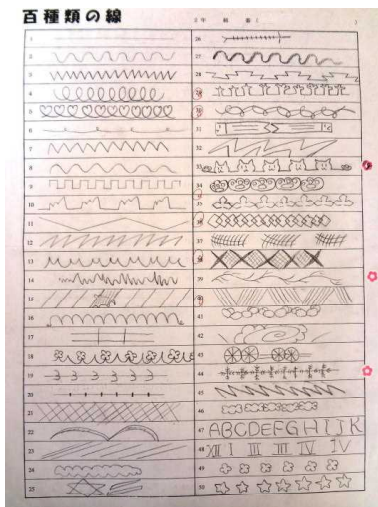 百種類の線
年 組 番 ( )
1
2
3
4
5
6
7
8
9
10
11
12
13
14
15
16
17
18
19
20
21
22
23
24
25
26
27
28
29
30
31
32
33
34
35
36
37
38
39
40
41
42
43
44
45
46
47 ABCDEFGHIJK
48 XII I III III IV IV
49
50